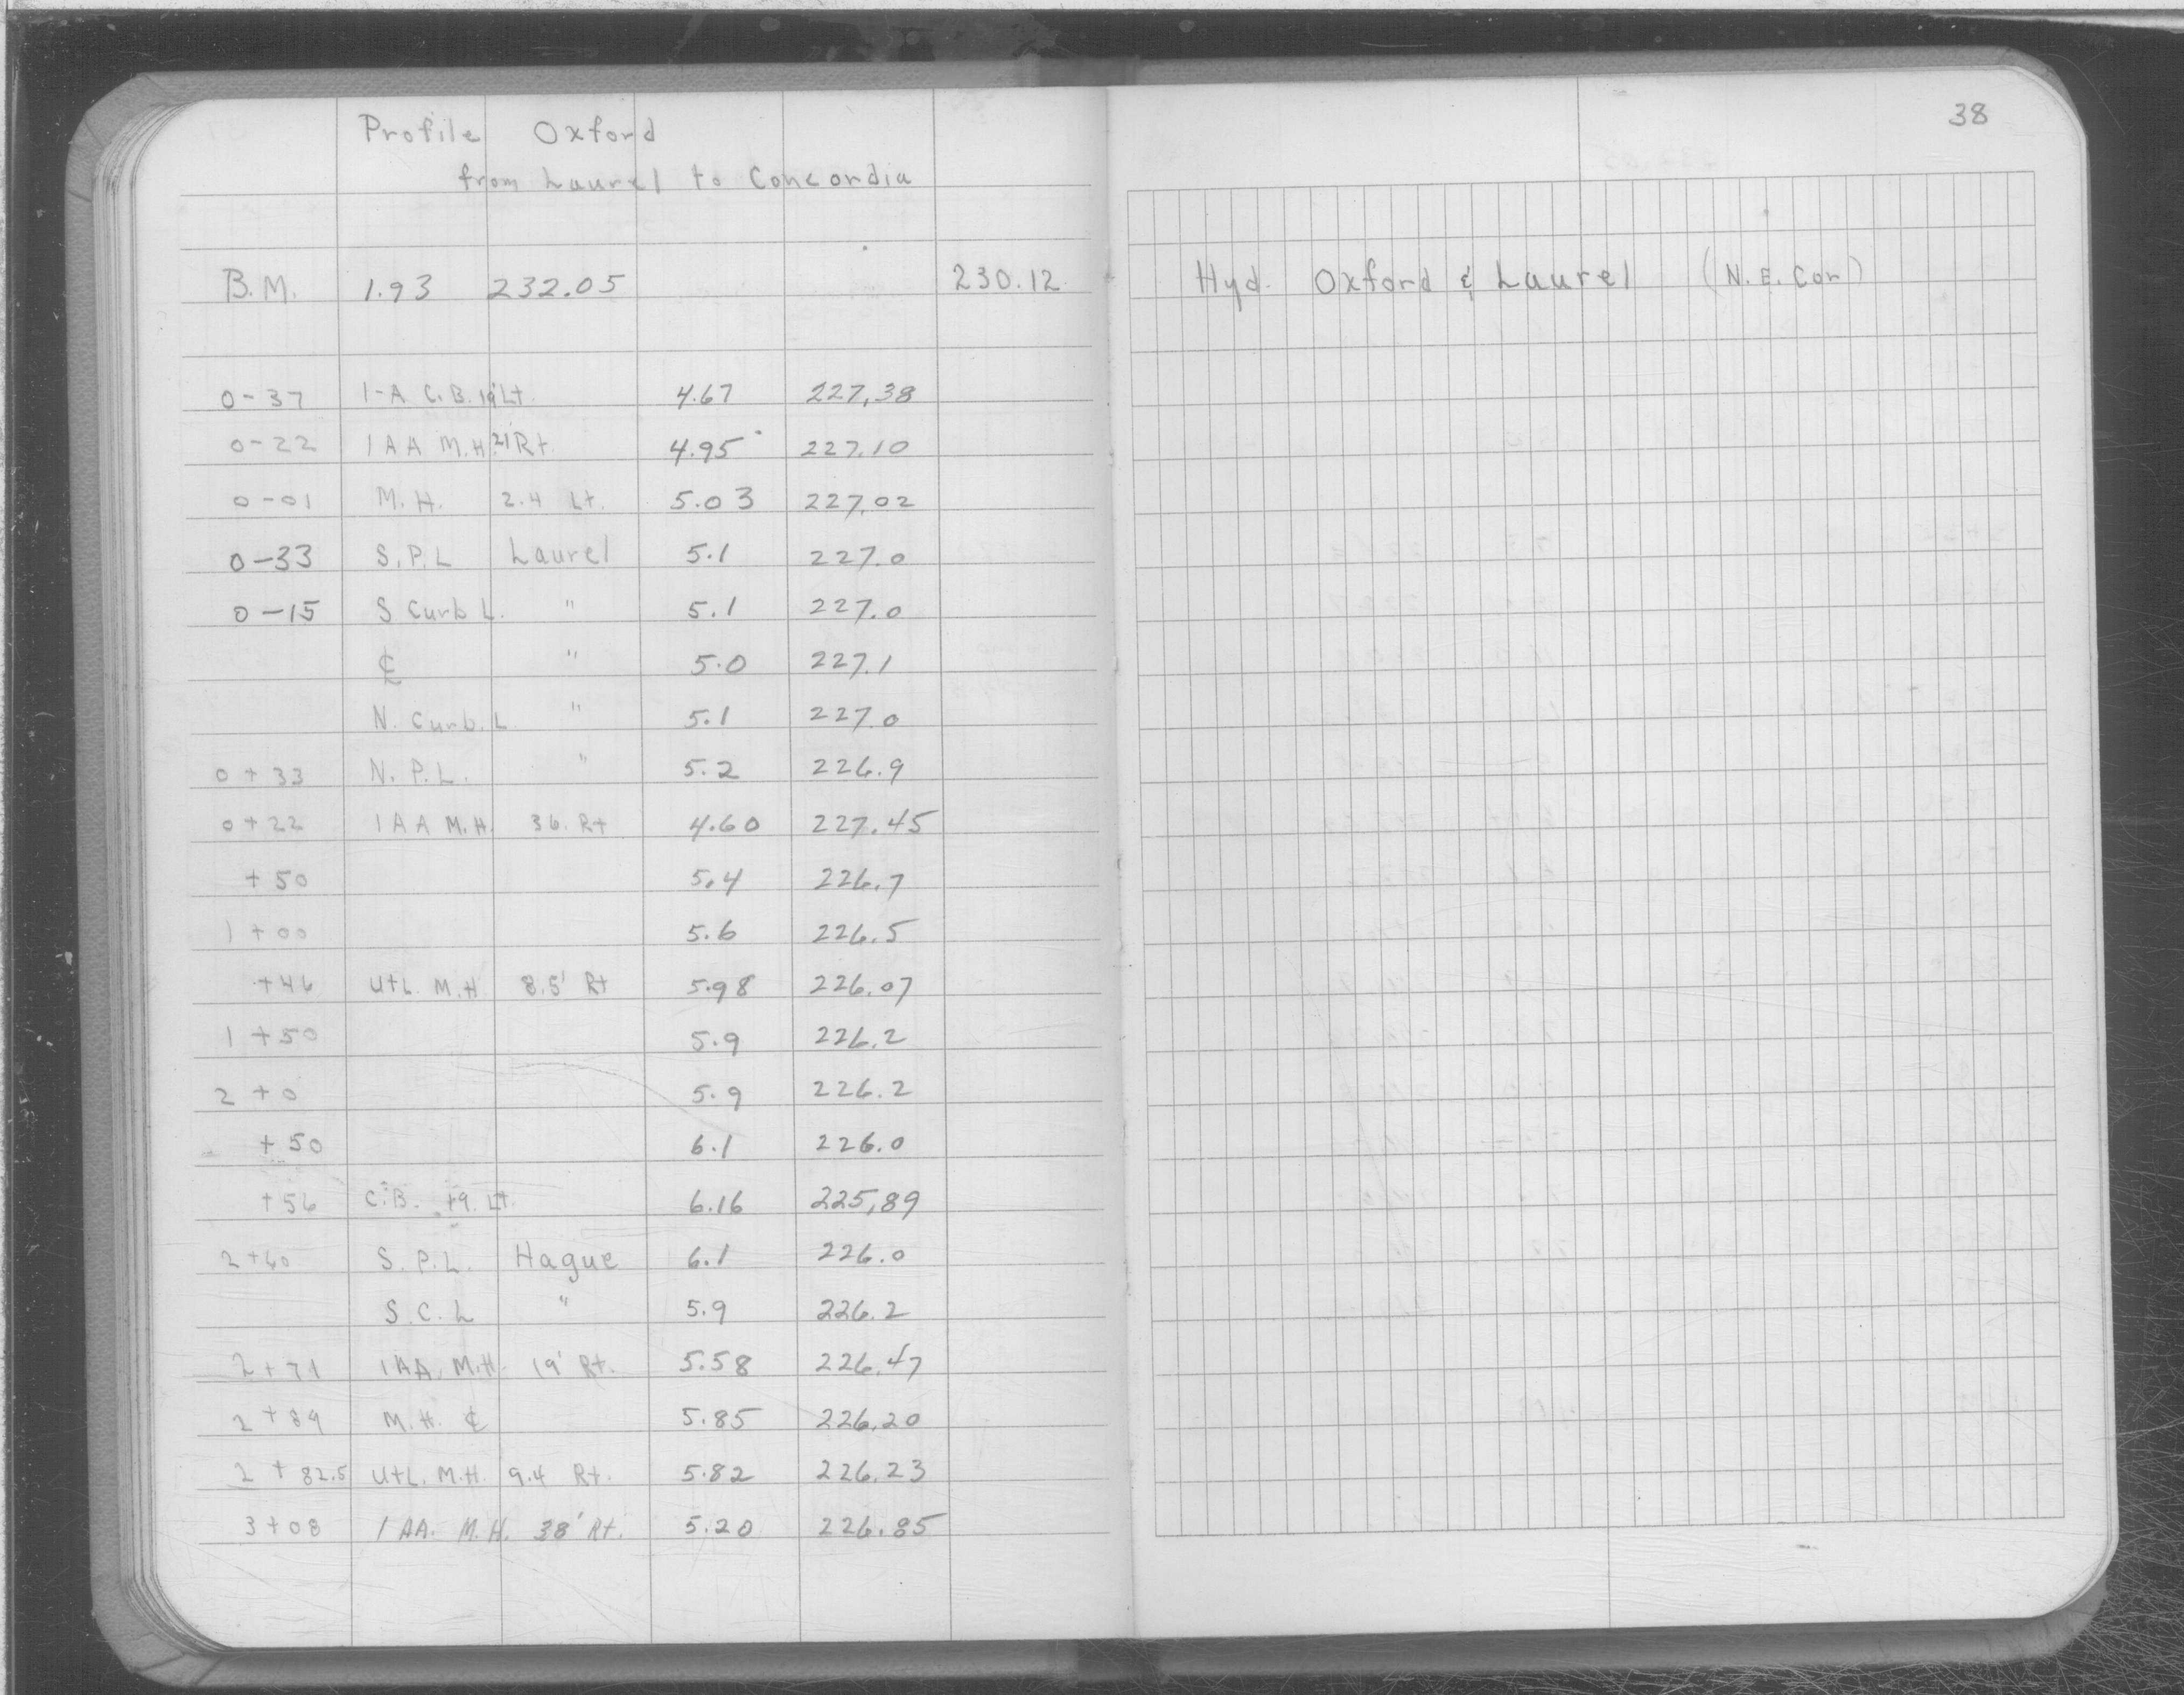 38
Profile Oxford
from Laurel to Concordia
B.M. 1.93 232.05 230.12 Hyd. Oxford & Laurel (N.E. Cor)
0-37 1-A C.B. 19' Lt. 4.67 227.38
0-22 1AA M.H. 21' Rt. 4.95 227.10
0-01 M.H. 2.4 Lt. 5.03 227.02
0-33 S.P.L Laurel 5.1 227.0
0-15 S Curb L. " 5.1 227.0
℄ " 5.0 227.1
N. Curb. L. " 5.1 227.0
0+33 N.P.L. " 5.2 226.9
0+22 1AA M.H. 36. Rt 4.60 227.45
+50 5.4 226.7
1+00 5.6 226.5
+46 UtL. M.H 8.5' Rt 5.98 226.07
1+50 5.9 226.2
2+0 5.9 226.2
+50 6.1 226.0
+56 C.B. 19. Lt. 6.16 225.89
2+60 S.P.L. Hague 6.1 226.0
S.C.L " 5.9 226.2
2+71 1AA. M.H. 19' Rt. 5.58 226.47
2+89 M.H. ℄ 5.85 226.20
2+82.5 UtL. M.H. 9.4 Rt. 5.82 226.23
3+08 1AA. M.H. 38' Rt. 5.20 226.85